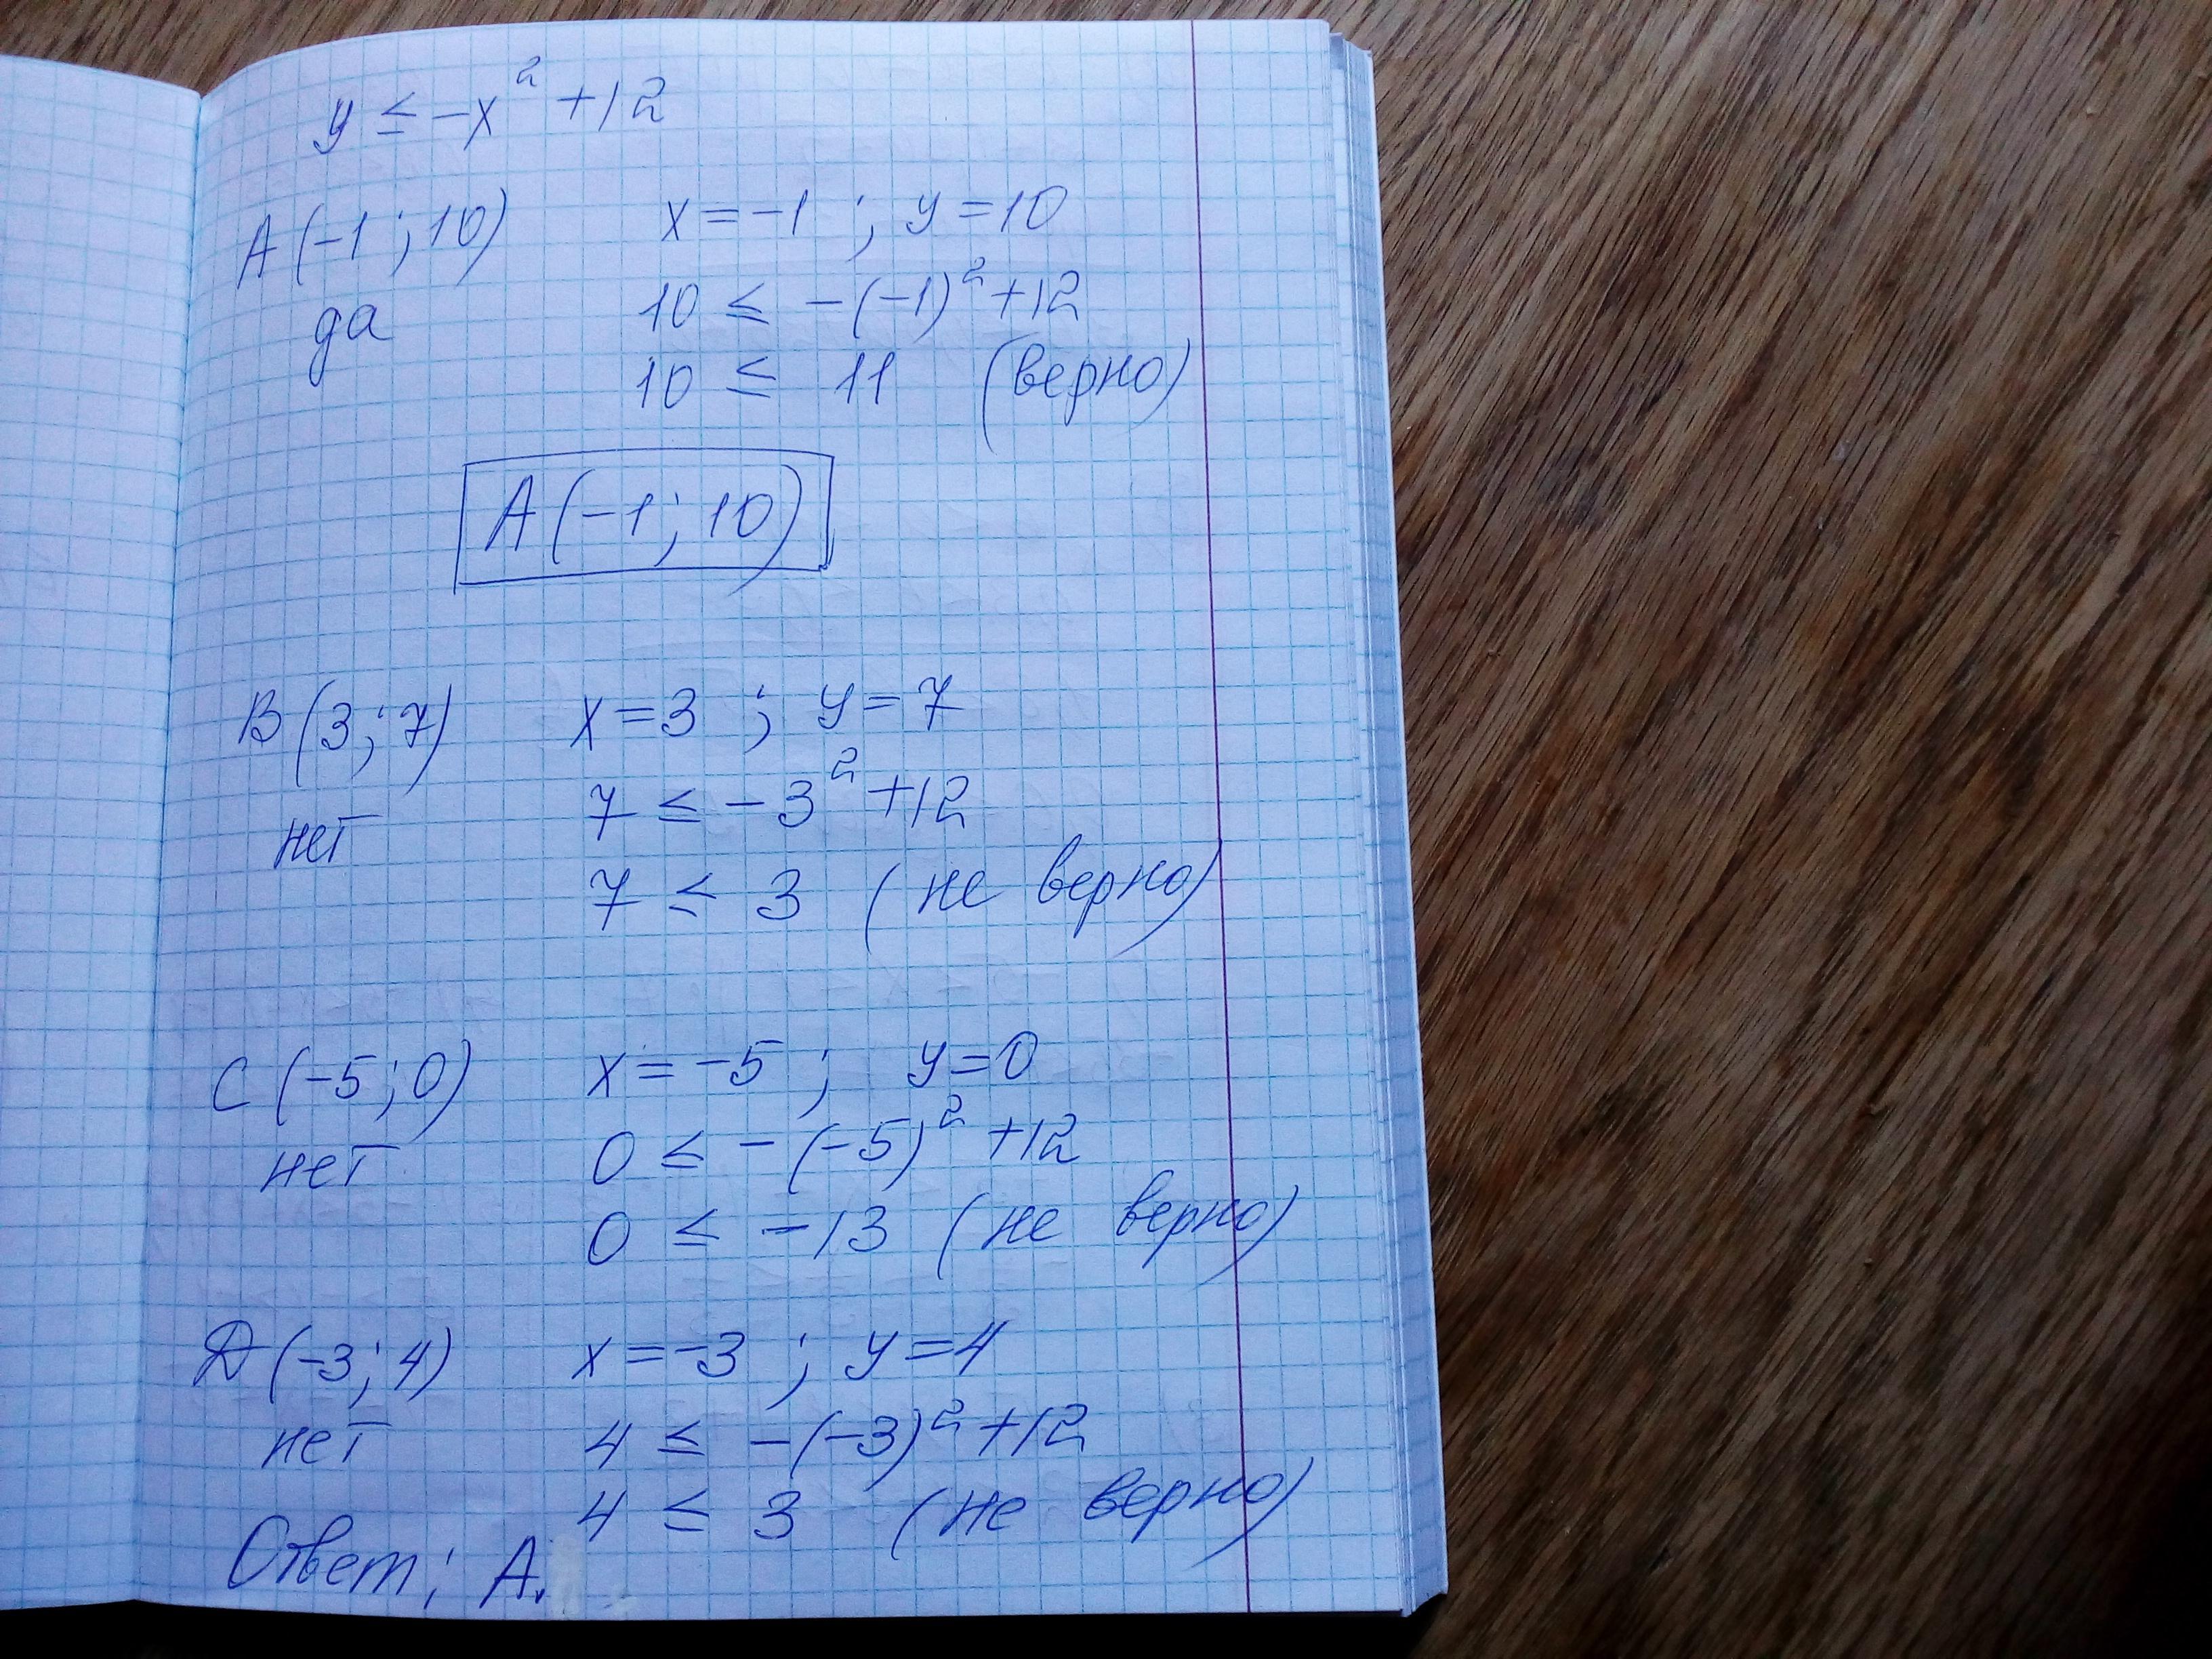 y ≤ -x² +12
A (-1 ; 10) x = -1 ; y = 10
да 10 ≤ -(-1)² +12
10 ≤ 11 (верно)
A (-1; 10)
B (3 ; 7) x = 3 ; y = 7
нет 7 ≤ -3² +12
7 ≤ 3 (не верно)
C (-5 ; 0) x = -5 ; y = 0
нет 0 ≤ -(-5)² +12
0 ≤ -13 (не верно)
D (-3 ; 4) x = -3 ; y = 4
нет 4 ≤ -(-3)² +12
4 ≤ 3 (не верно)
Ответ: A.